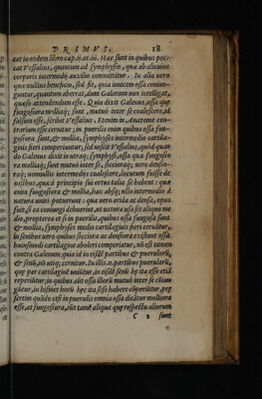 PRIMVS. 18
cat in eodem libro cap. ij. et iij. Hæc sunt in quibus peccat
Vessalius, quantum ad symphysin, quæ ab alicuius
corporis intermedij auxilio connititur. In alia vero
quæ nullius beneficio, sed sit, quia inuicem ossa coniunguntur,
quantum aberrat, dum Galenum non intelligat,
quæso attendendum esse. Quia dixit Galenus, ossa quæ
fungosiora molliaq; sunt, mutuò inter se coalescere, id
falsum esse, scribit Vessalius. Etenim in Anatome contrarium
esse cernitur; in puerulis enim quibus ossa fungosiora
sunt, & mollia, symphyses intermedio cartilaginis
fieri conspiciuntur; sed nescit Vessalius, quid quando
Galenus dixit in
molliaq; sunt mutuò inter se,
nonnullis intermedijs coalescere, locutum fuisse de
ossibus, quæ à principio sui ortus talia se habent: quæ
enim fungosiora & mollia, hæc absq; ullo intermedij à
natura uniri potuerunt: quæ vero arida ac densa, opus
fuit, si ea coniungi debuerint, ut natura usa sit aliquo medio,
propterea et si in puerilis, quibus ossa fungosa sunt
& mollia, symphyses medio cartilaginis fieri cernuntur,
in senibus vero quibus sicciora ac densiora existunt ossa,
huiusmodi cartilaginis aboleri comperiatur, nō est tamen
contra Galenum, quia id in eisdē partibus & puerulorū,
& senū, nō utiq; cernitur. In illis
quæ per cartilaginē uniūtur, in eisdē senū hæ ita esse
reperiūtur, in quibus autē ossa illorū mutuò inter se coniungūtur,
in
sertim quādo etsi in puerulis omnia ossa dicātur molliora
esse, et fungosiora, sūt tamē aliqua quæ respectu aliorum
C 2 sunt